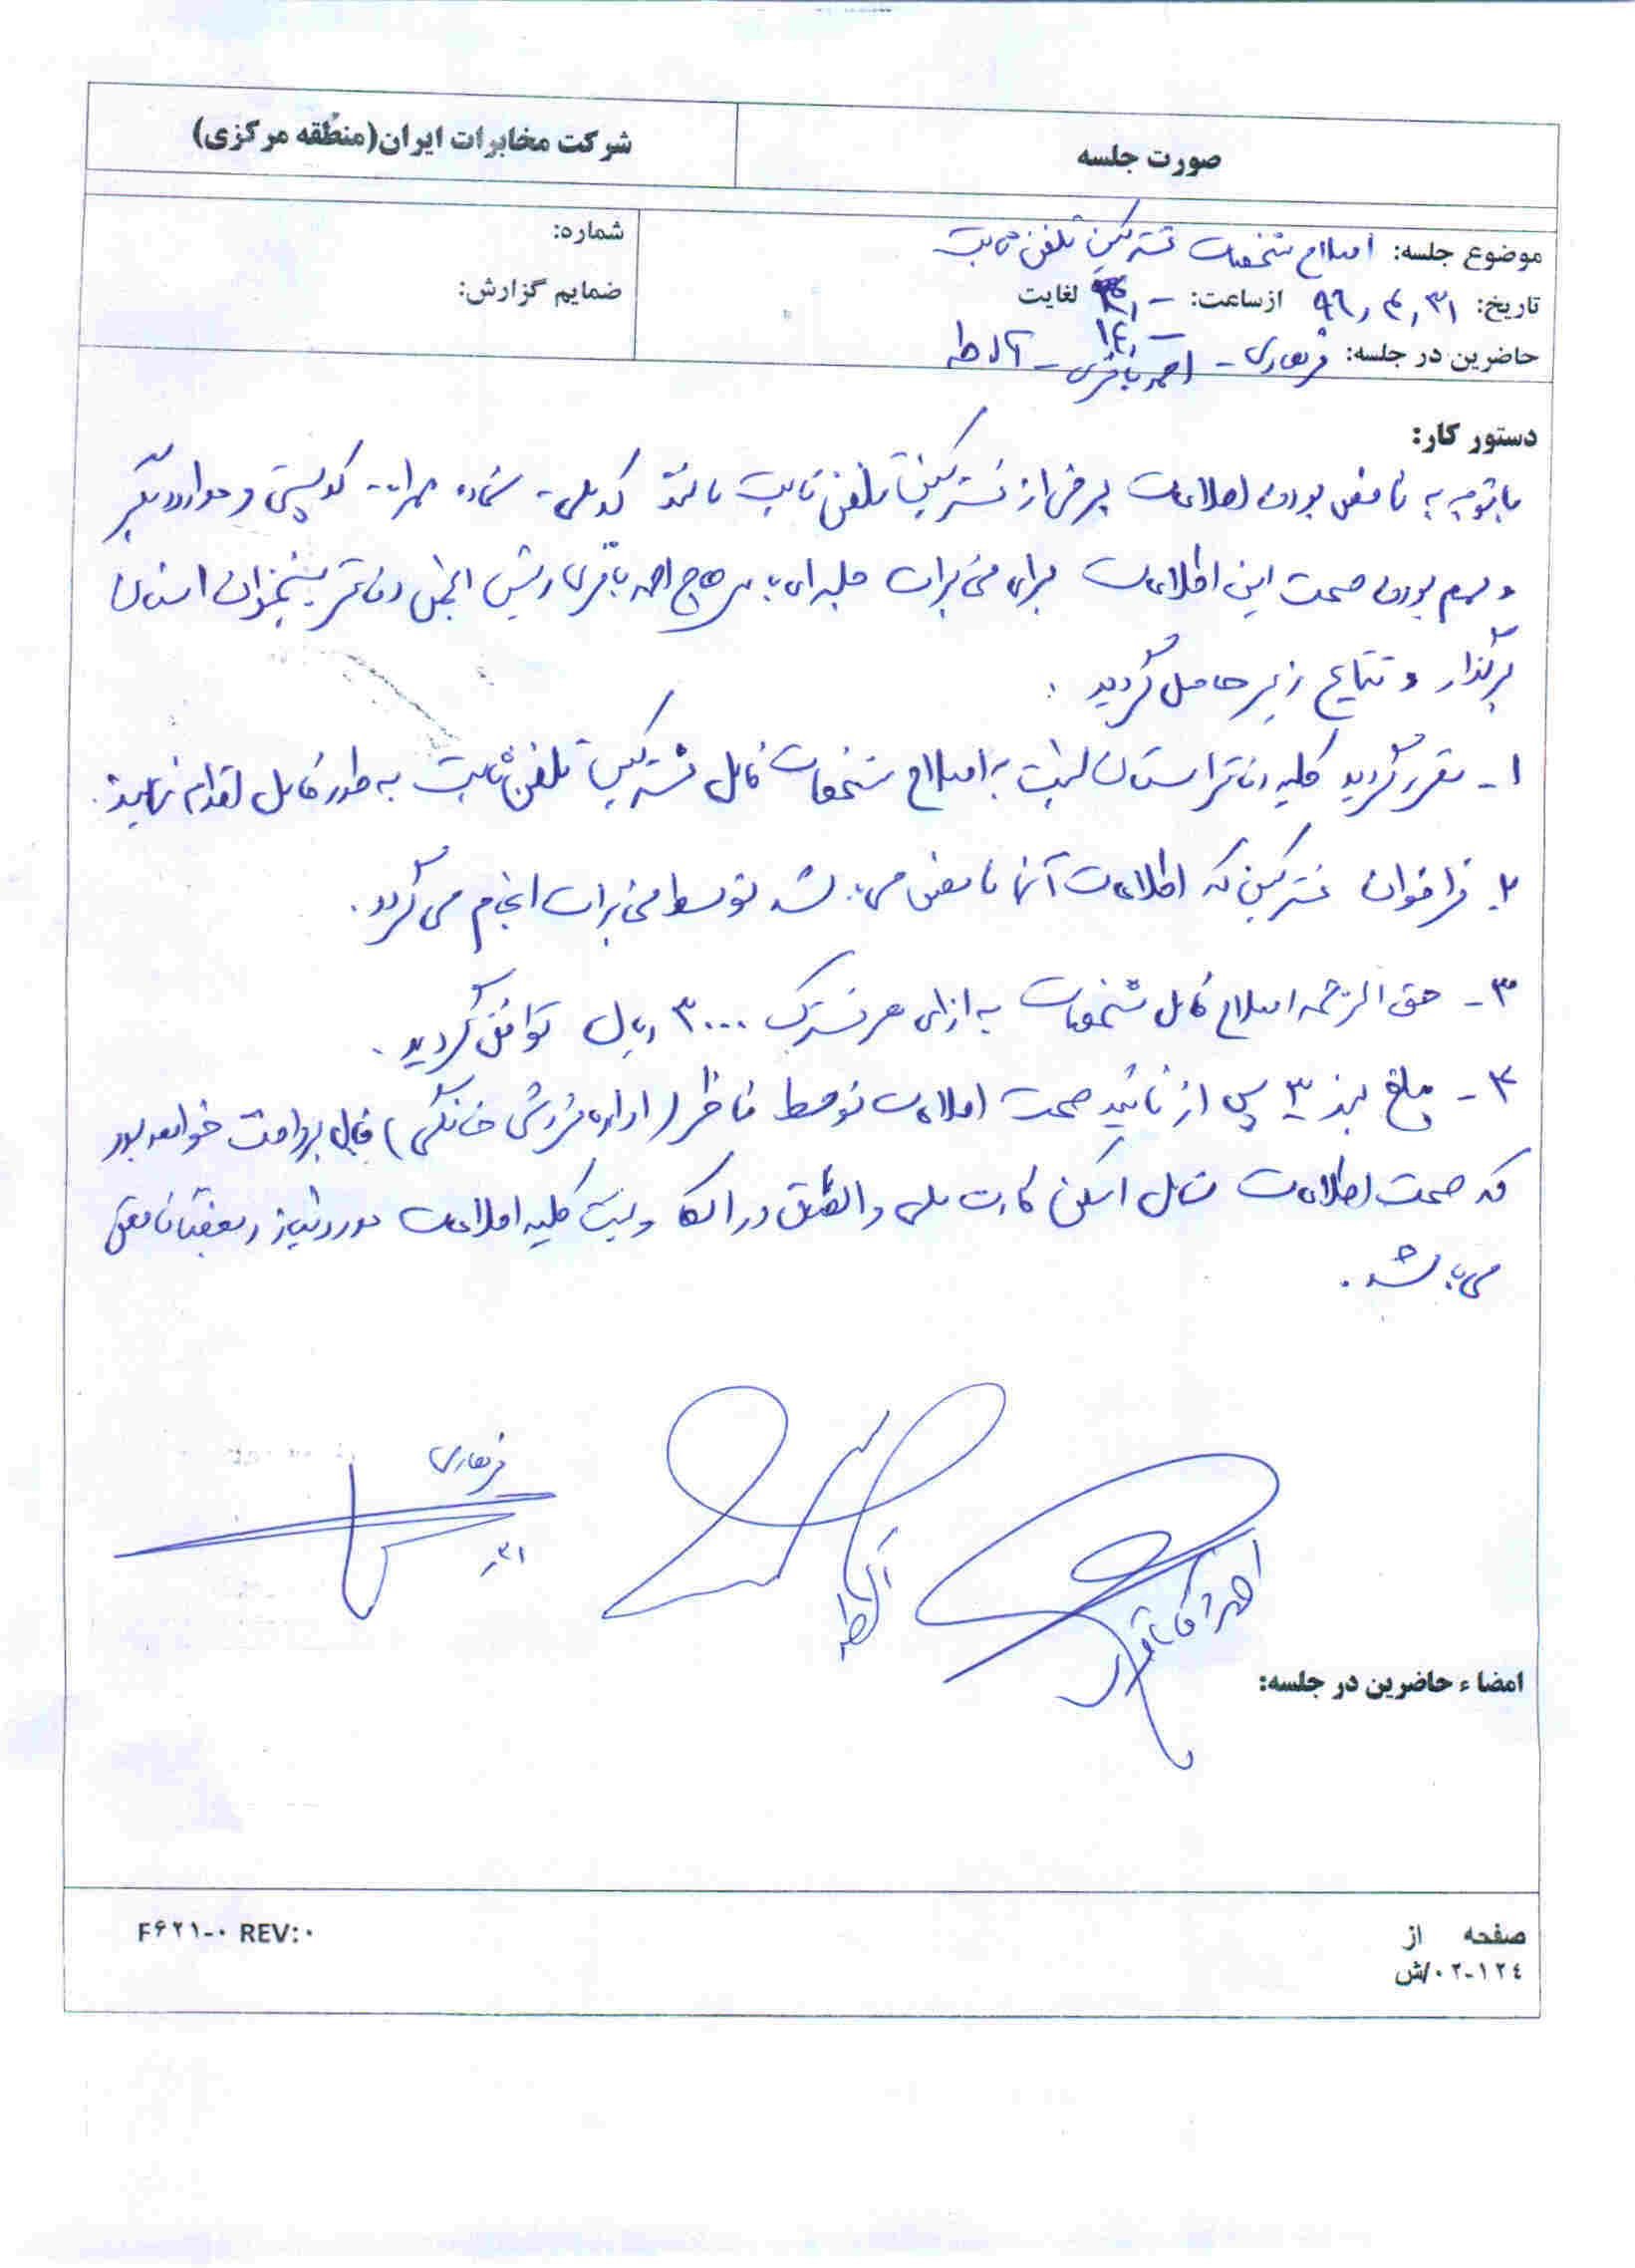 صورت جلسه
شرکت مخابرات ایران(منطقه مرکزی)
موضوع جلسه: اصلاح مشخصات مشترکین تلفن ثابت
شماره:
تاریخ: ۹۶٫۴٫۳۱ ازساعت: لغایت
ضمایم گزارش:
حاضرین در جلسه: فرهادی - احمد باقری - آل طه
دستور کار:
باتوجه به ناقص بودن اطلاعات برخی از مشترکین تلفن ثابت مانند کدملی - شماره همراه - کدپستی و موارد دیگر
و مهم بودن صحت این اطلاعات برای مخابرات جلسه ای با حاج احمد باقری رئیس انجمن دفاتر پیشخوان استان
برگذار و نتایج زیر حاصل گردید.
۱- مقرر گردید کلیه دفاتر استان نسبت به اصلاح مشخصات کامل مشترکین تلفن ثابت به طور کامل اقدام نمایند.
۲- فراخوان مشترکین که اطلاعات آنها ناقص می باشد توسط مخابرات انجام می گردد.
۳- حق الزحمه اصلاح کامل مشخصات به ازای هر مشترک ۳۰۰۰ ریال توافق گردید.
۴- مبلغ بند ۳ پس از تائید صحت اطلاعات توسط ناظر (اداره فروش خانگی) قابل پرداخت خواهد بود
که صحت اطلاعات شامل اسکن کارت ملی و الصاق در و ثبت کلیه اطلاعات مورد نیاز ناقص
می باشد.
فرهادی
آل طه
امضاء حاضرین در جلسه:
صفحه از
F۶۲۱-۰ REV:۰
۰۲-۱۲٤/ش